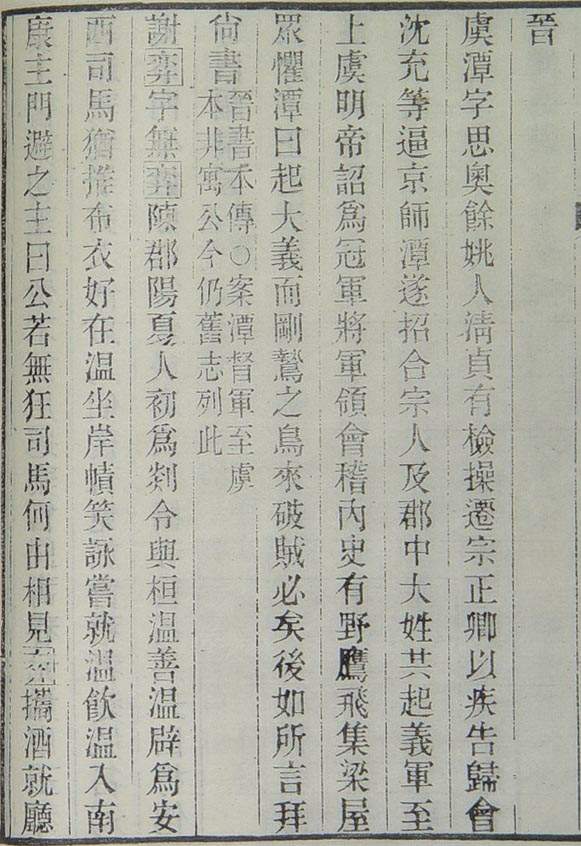 晉
虞潭字思奧餘姚人淸貞有檢操遷宗正卿以疾告歸會
沈充等逼京師潭遂招合宗人及郡中大姓共起義軍至
上虞明帝詔爲冠軍將軍領會稽內史有野鷹飛集梁屋
眾懼潭曰起大義而剛鷙之鳥來破賊必矣後如所言拜
尙書
晉書本傳○案潭督軍至虞
本非寓公今仍舊志列此
謝奕字無奕陳郡陽夏人初爲剡令與桓溫善溫辟爲安
西司馬猶推布衣好在温坐岸幘笑詠嘗就温飮温入南
康主門避之主曰公若無狂司馬何由相見奕攜酒就廳